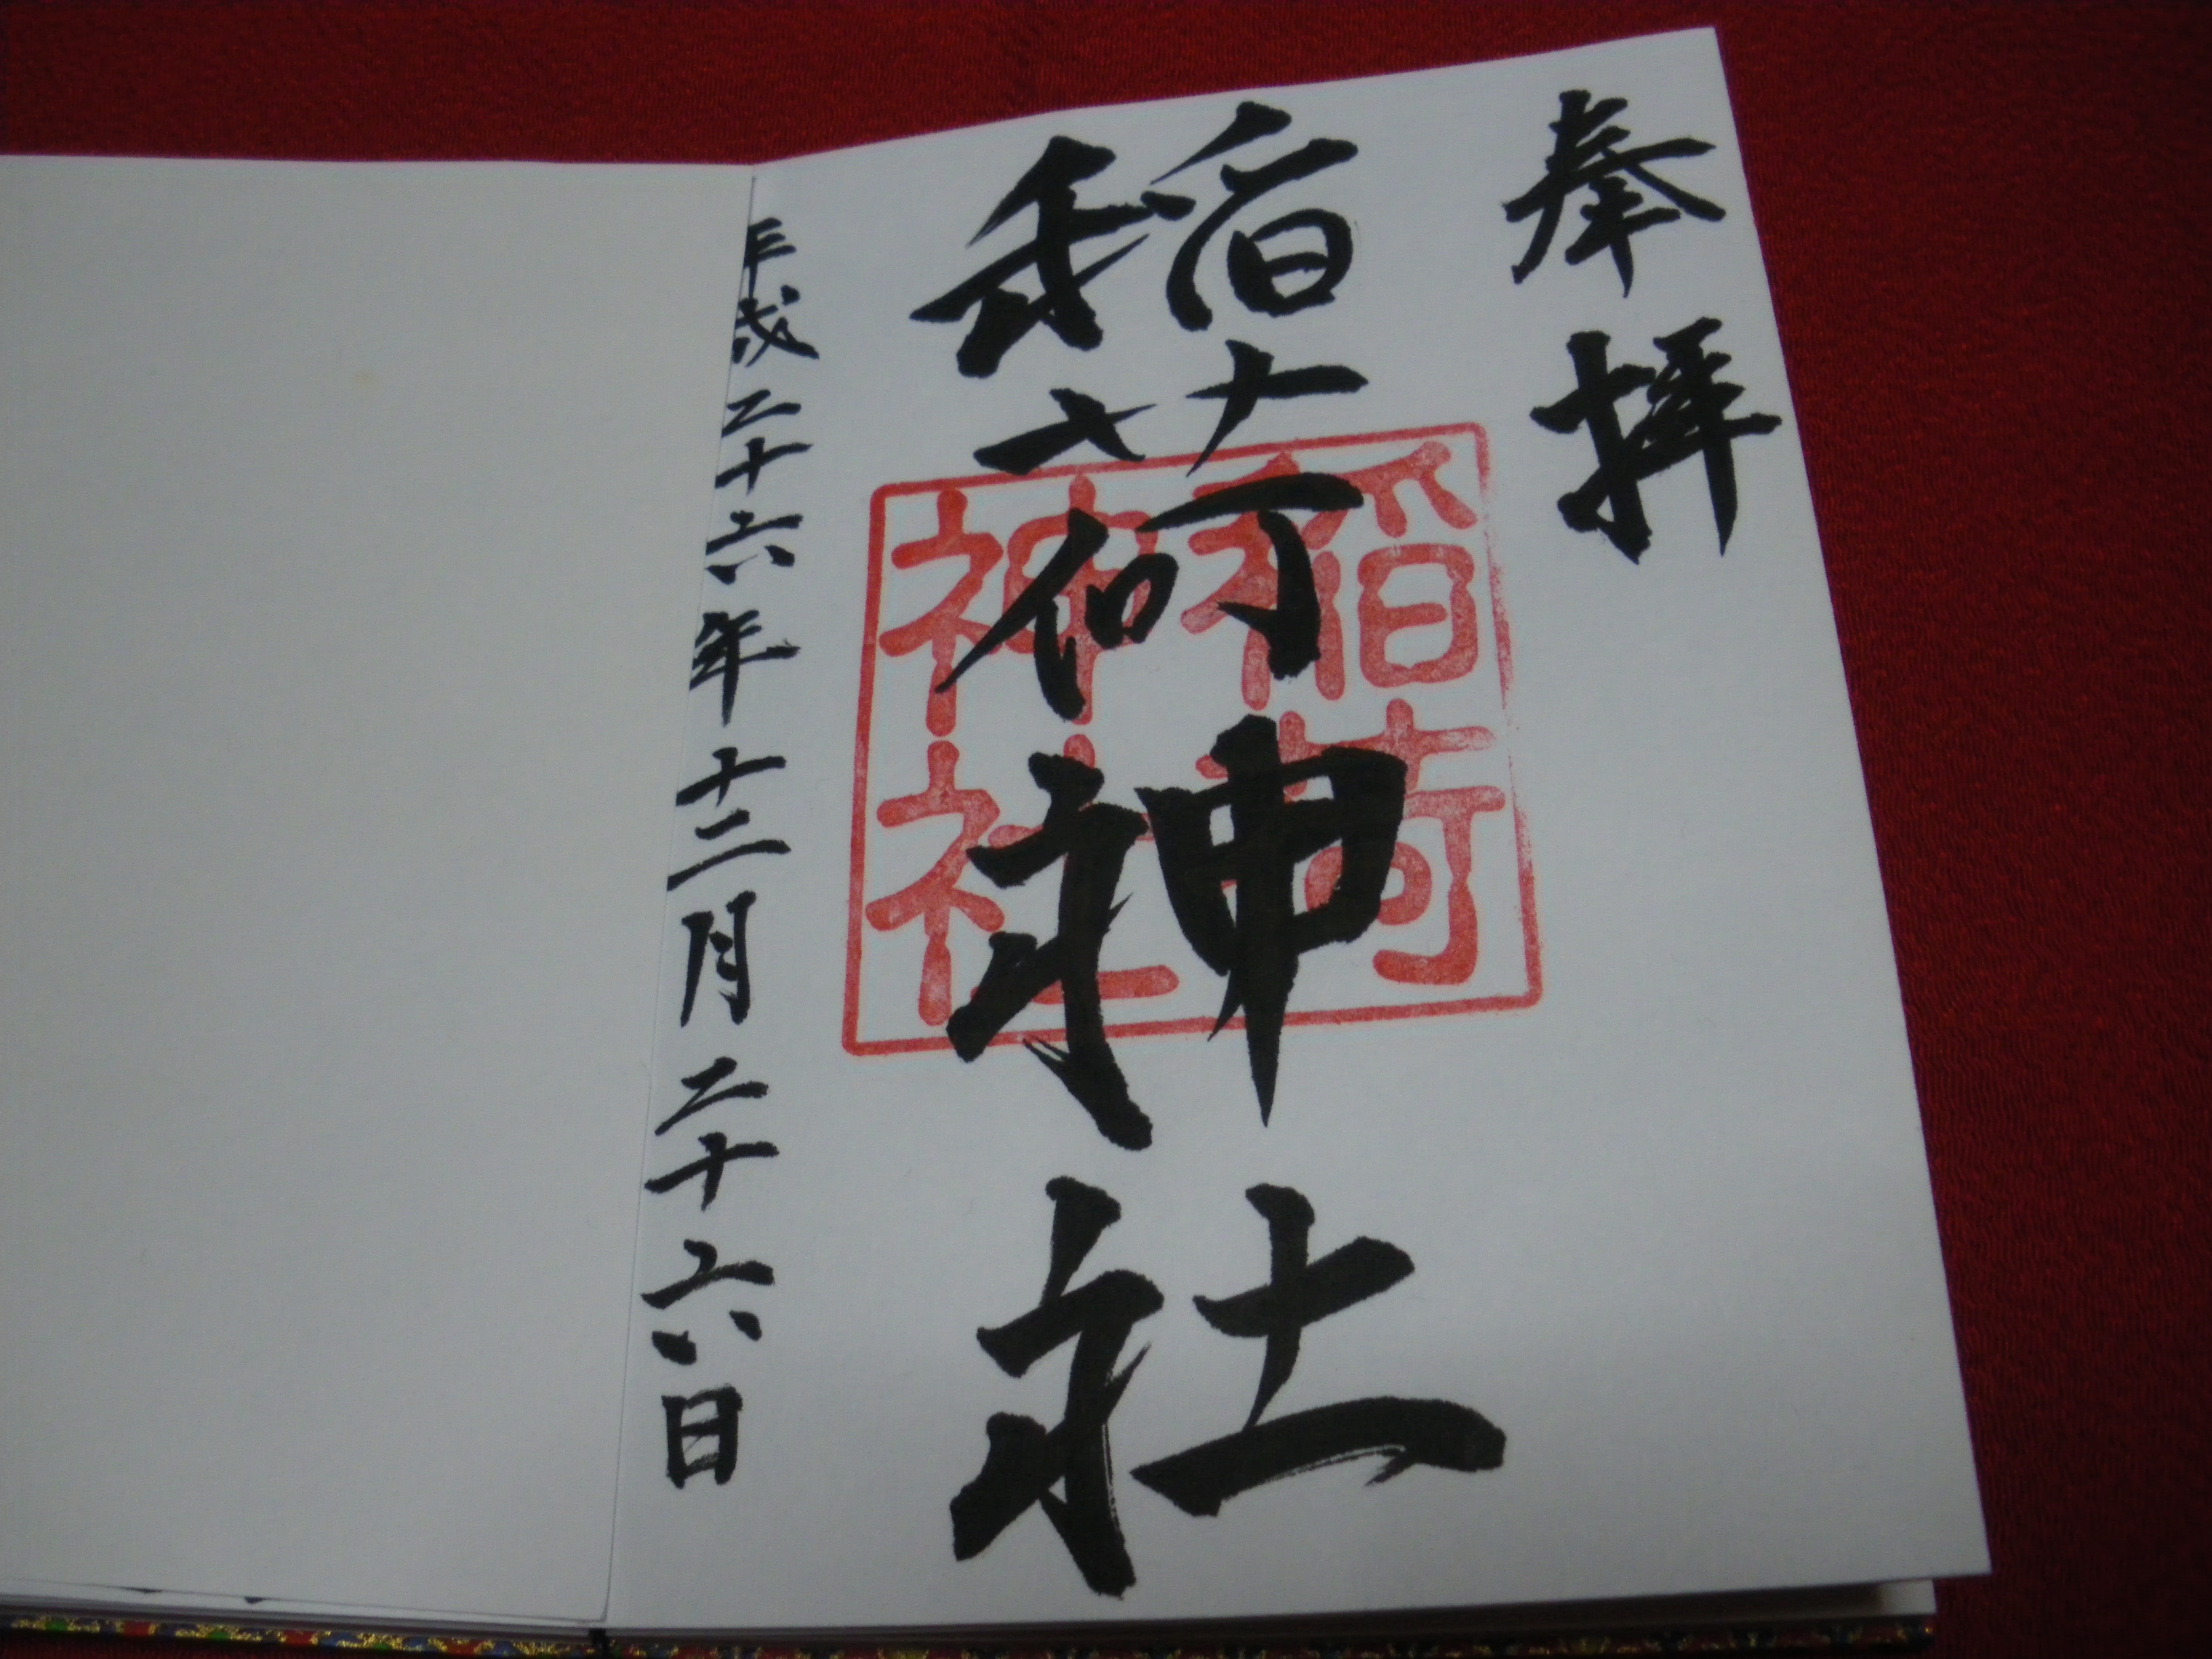 奉拝
稲荷神社
稲荷
神社
平成二十六年十二月二十六日